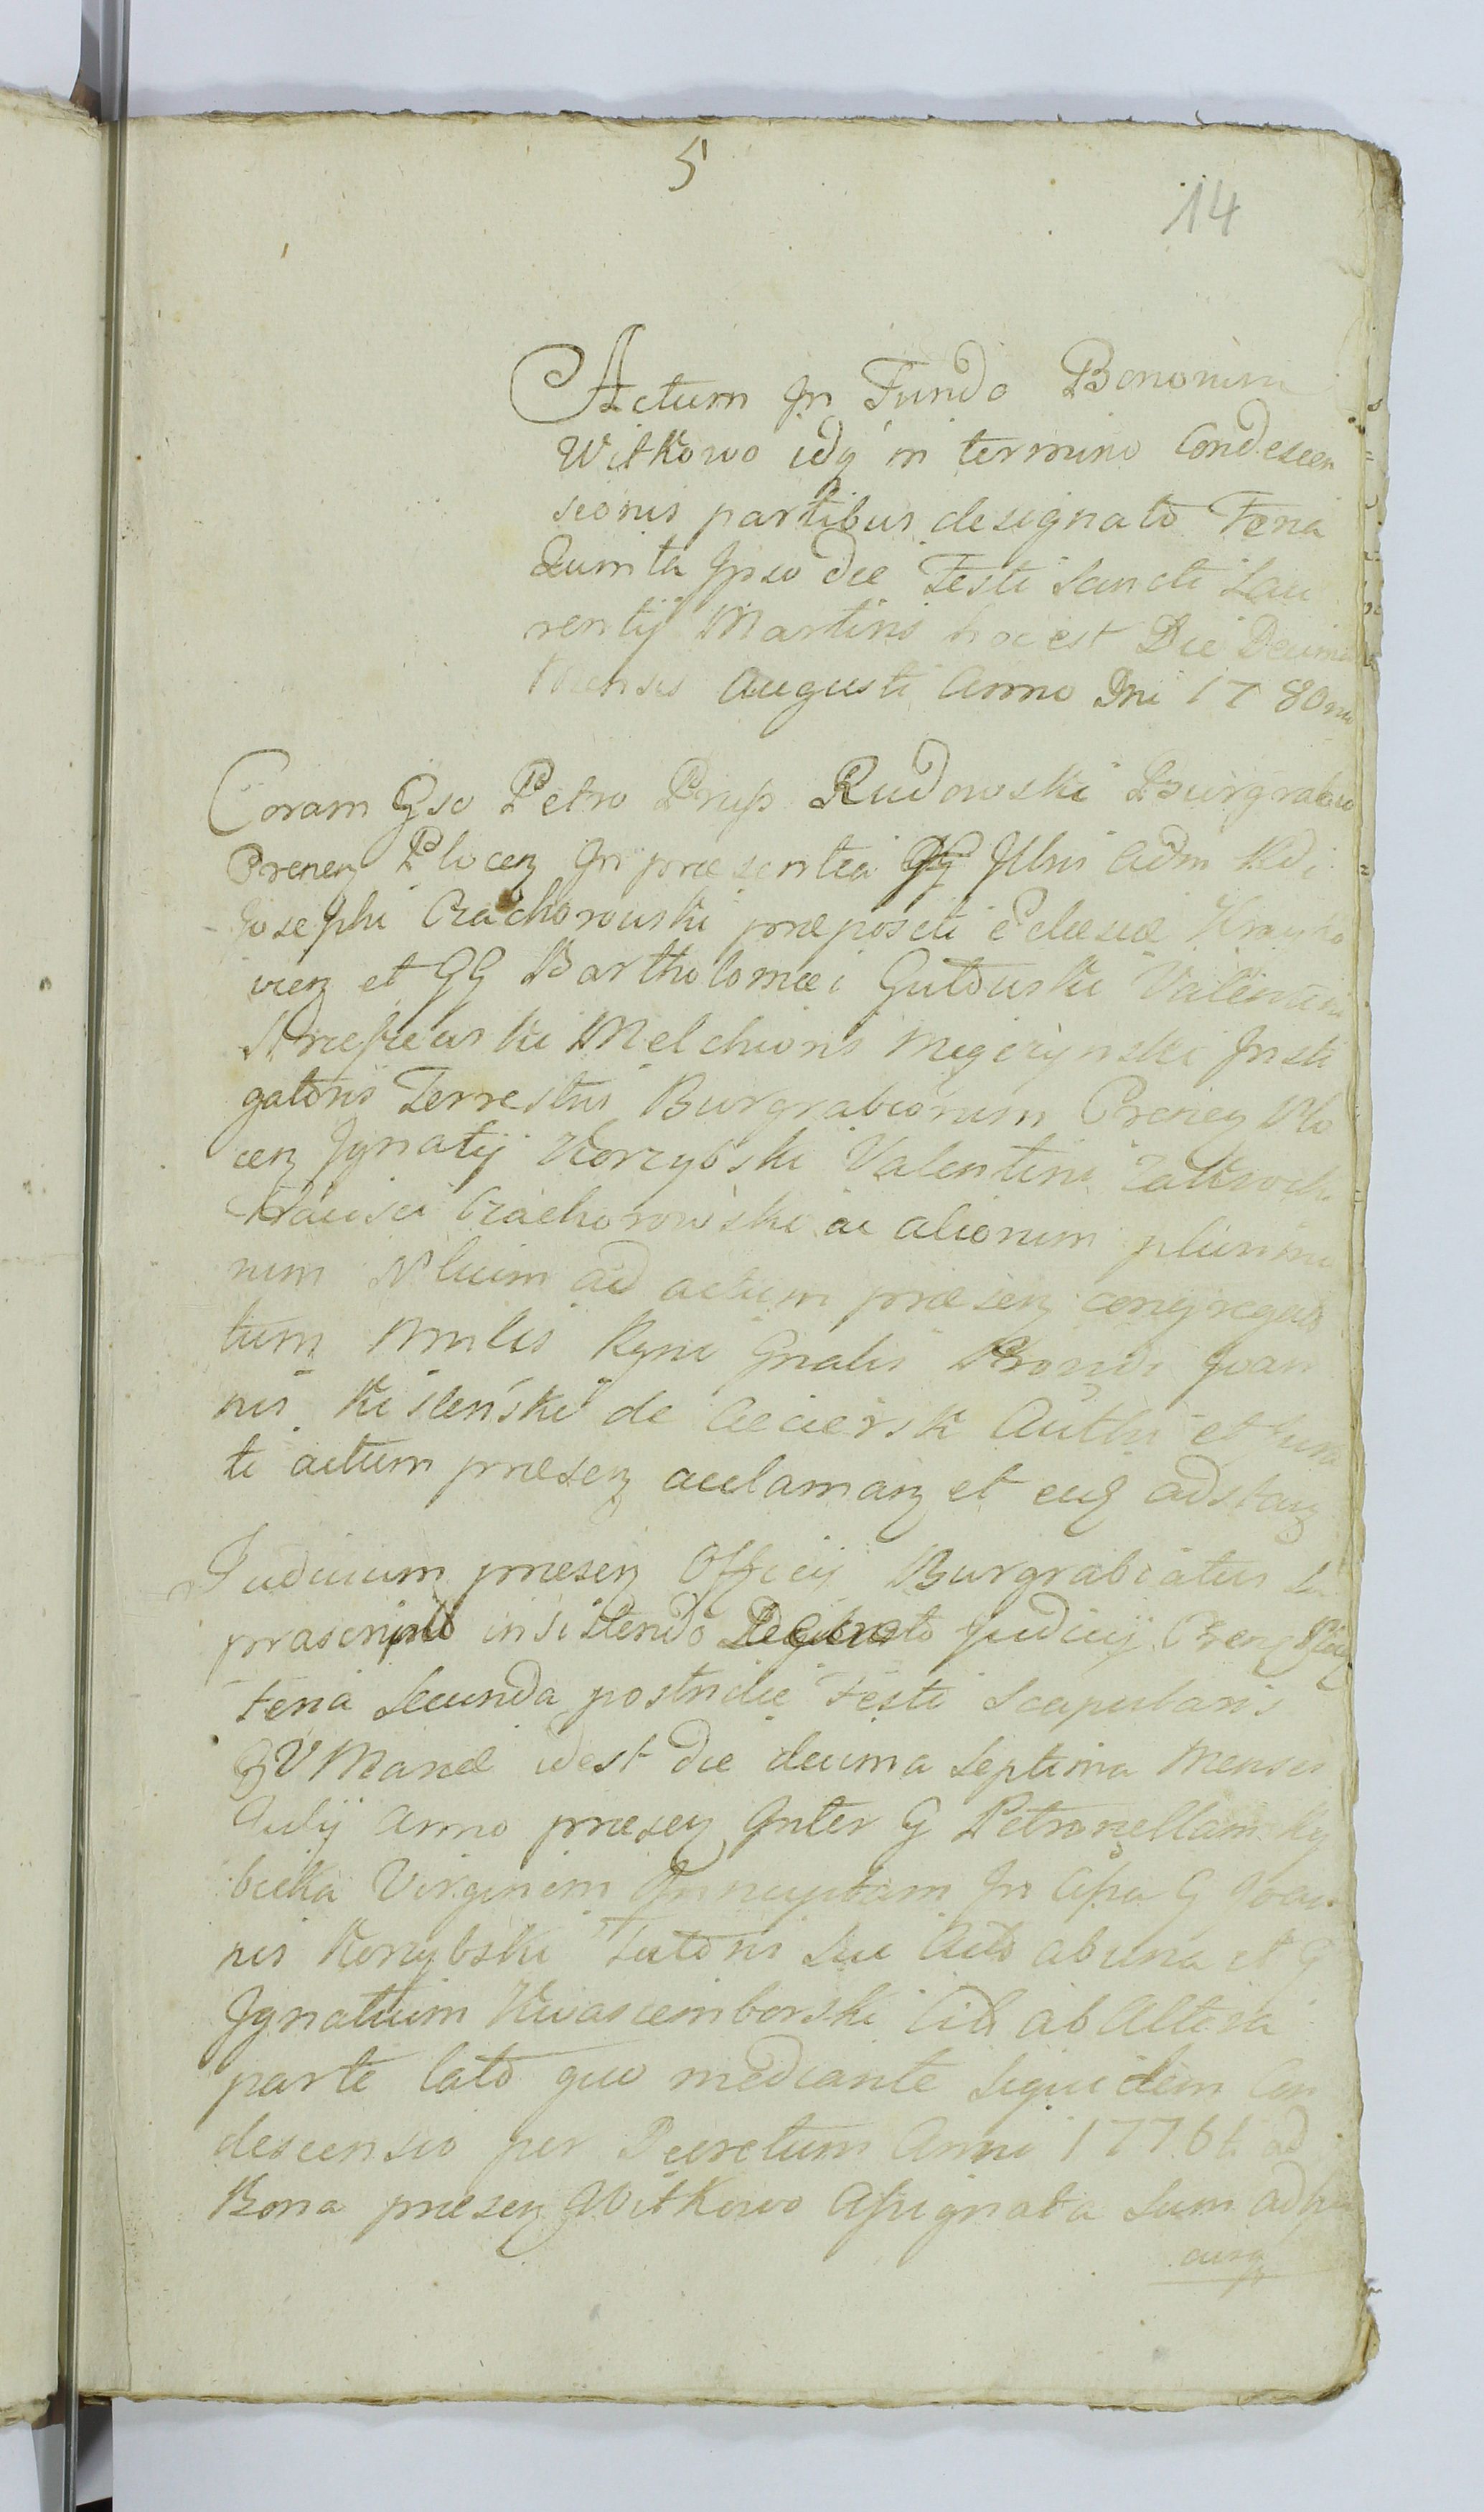 5
14
Actum In Fundo Bonorum
Witkowo idq in termino Condescen
sionis partibus designato Feria
Quinta Ipso die Festi Sancti Lau
rentij Martiris hoc est Die Decima
Mensis Augusti Anno Dni 1780mo
Coram Gso Petro Prusz Rudowski Burgrabio
Crenen Plocen In præsentia Illris Adm Rdi
Josephi Czachorowski præpositi Eclesiæ
vien et GG Bartholomæi Gutowski Valentini
Melchioris Insti
gatoris Terrestris Burgrabiorum Crenen Plo
cen Ignatij Korzybski Valentini
Czachorowski ac aliorum plurimo
rum Nblium ad actum præsen congrega
tum Mnlis Regni Gnalis Providi Joan
nis Kisleński de Cieciersk Authi et Jura
ti actum præsen acclaman et eidq adstan
Judicium præsen Officij Burgrabiatus Su
prascripto insistendo Decreto Judicij Crenen Plocen
Feria Secunda postridie Festi Scapularis
BV Mariæ idest die decima Septima Mensis
Julij Anno præsen Inter G Petronellam Ry
bicka Virginem Innuptam In Assa G Joan
nis Korzybski Tutoris Sui Acto ab una et G
Ignatium Kwasiemborski Cito ab Altera
parte lato quo mediante siquidem Con
descensio per Decretum Anni 1776ti ad
Bona præsen Witkowo Assignata Sum adhu